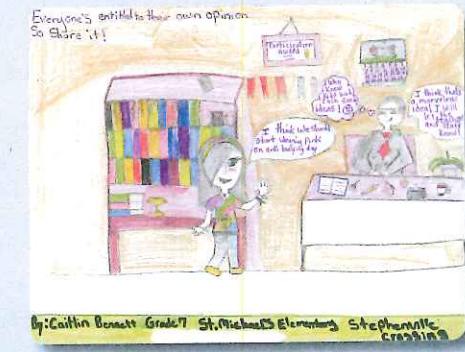 Everyone's entitled to their own opinion
So Share it!
Participation
award
I think we should
start wearing Pink
on anti bullying day
I think thats
a marvelous
idea! I will
let
and
know!
By: Caitlin Bennett Grade 7 St. Michael's Elementary Stephenville
Crossing